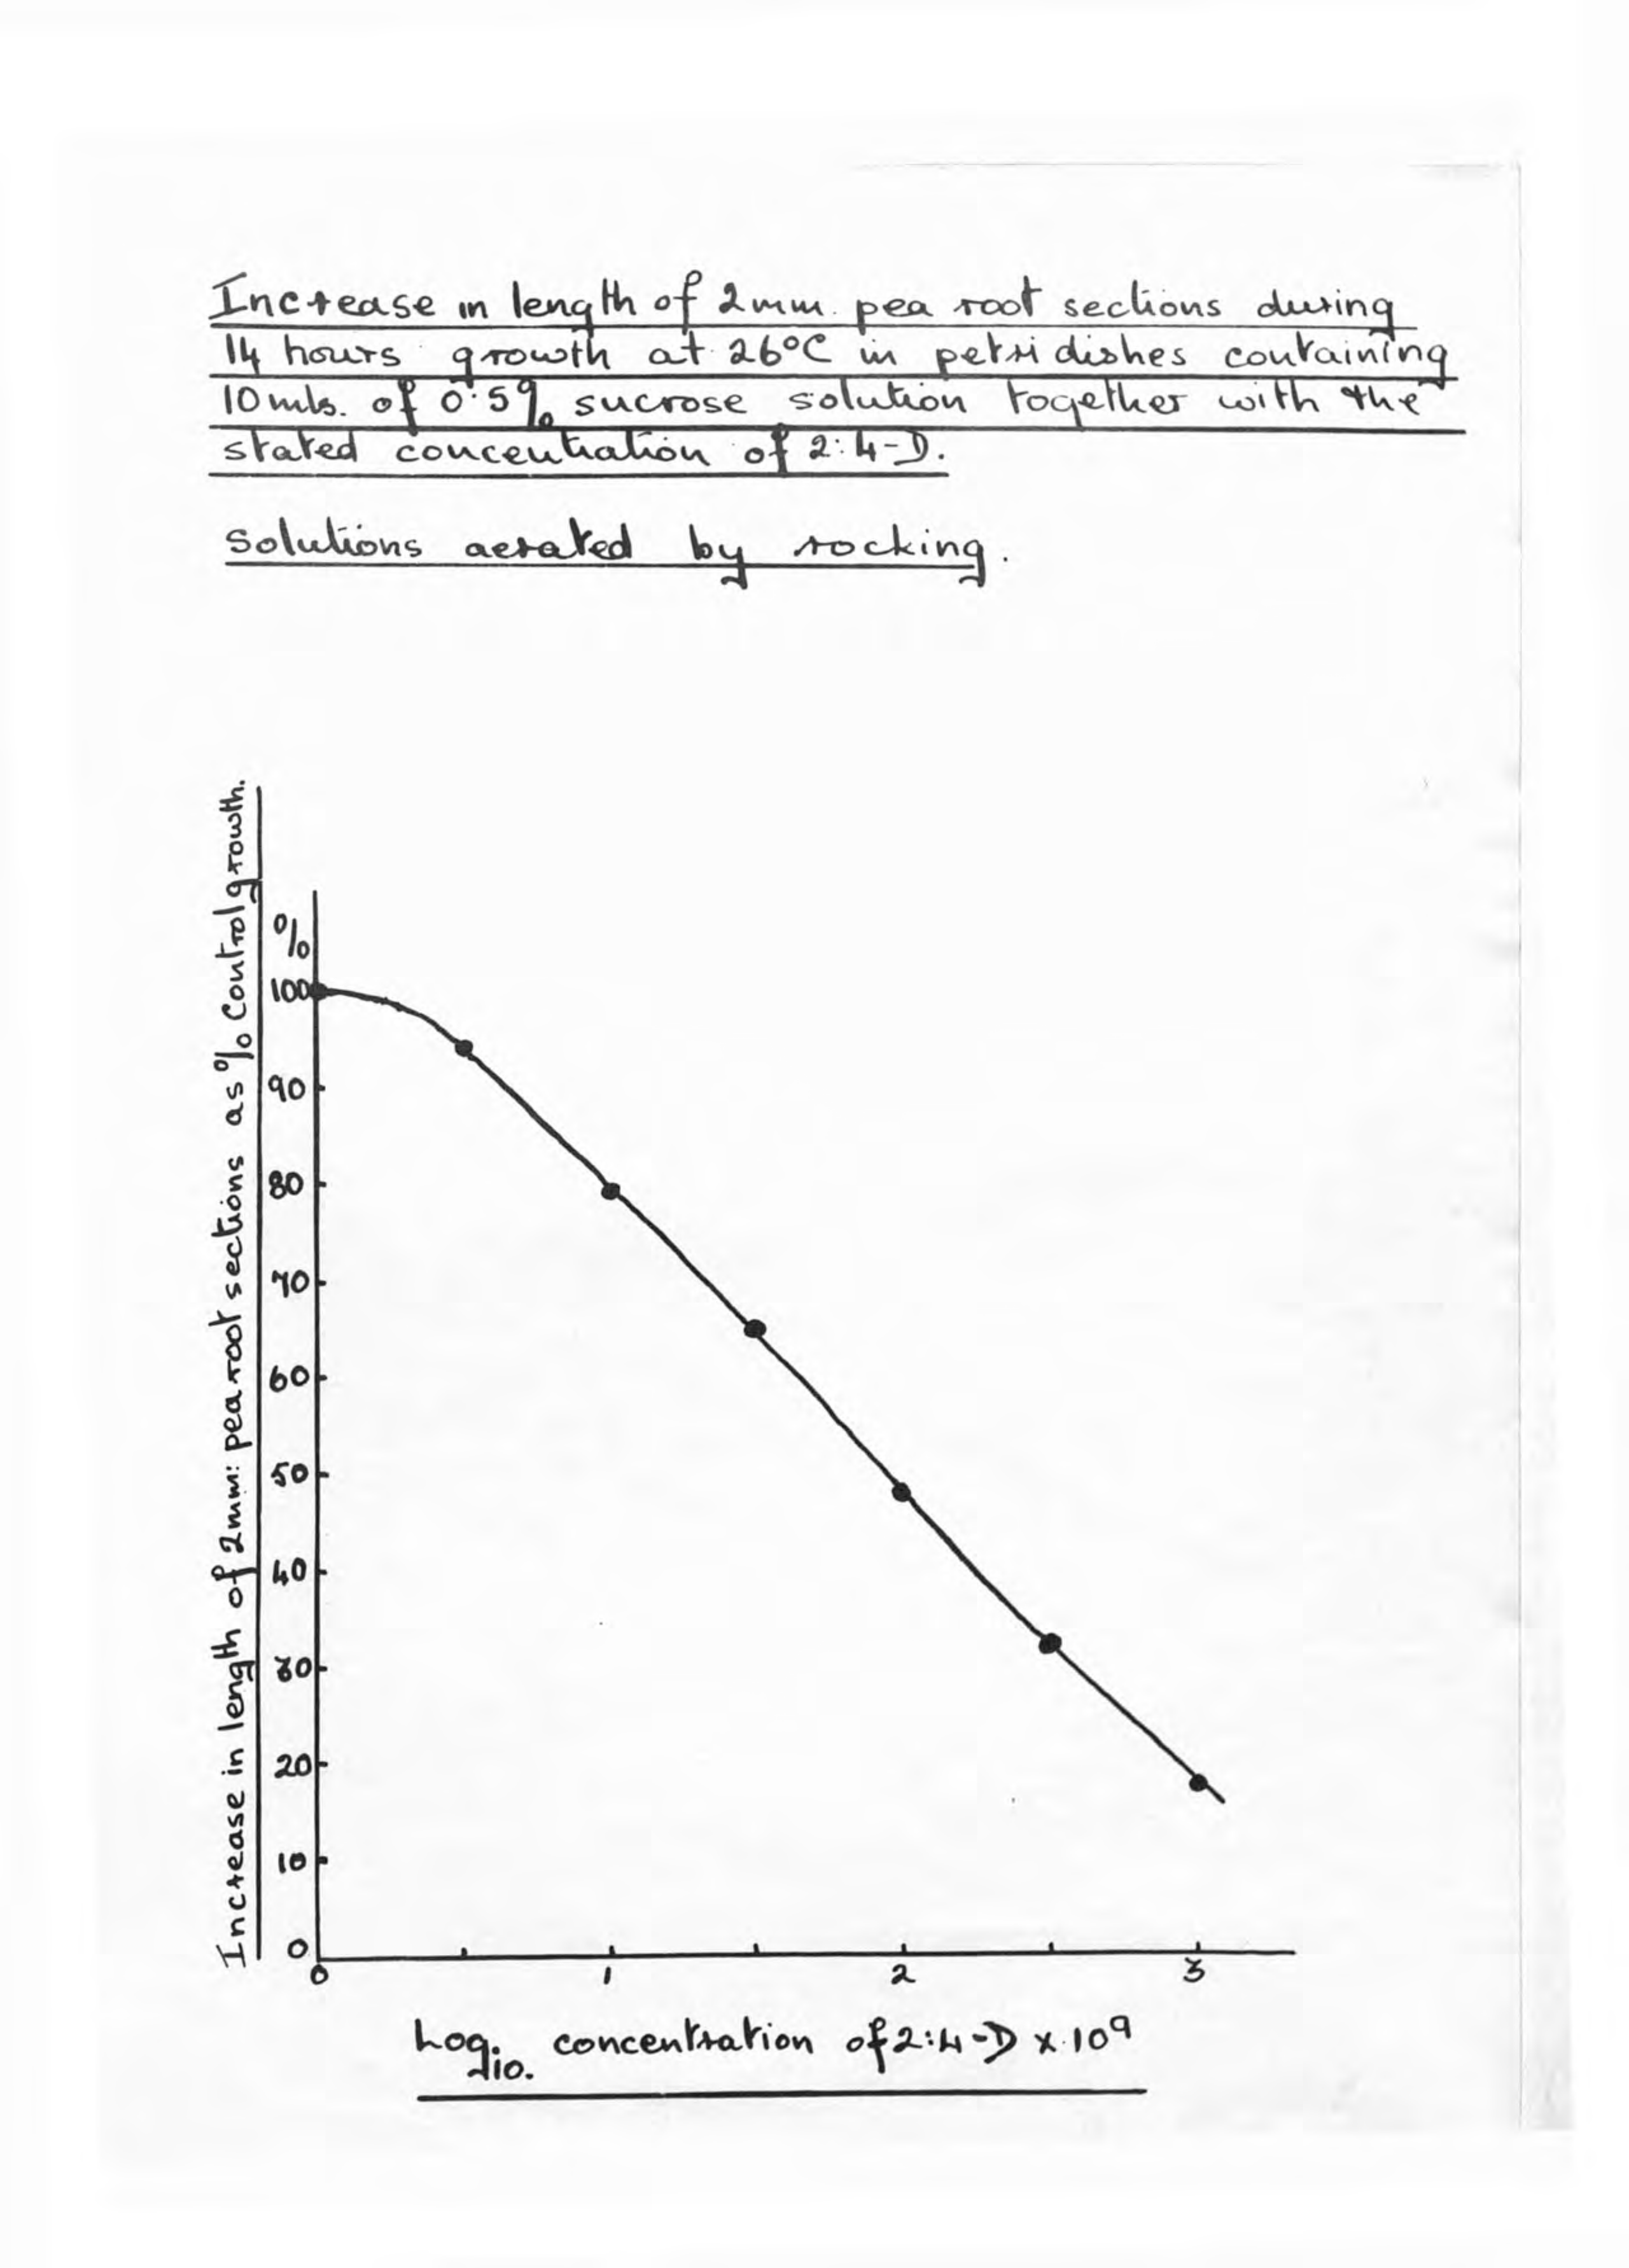 Increase in length of 2mm. pea root sections during
14 hours growth at 26°C in petri dishes containing
10mls. of 0·5% sucrose solution together with the
stated concentration of 2:4-D.
Solutions aerated by rocking.
Increase in length of 2mm: pea root sections as % Control growth.
%
100
90
80
70
60
50
40
30
20
10
0
0 1 2 3
Log10. concentration of 2:4-D x 10⁹